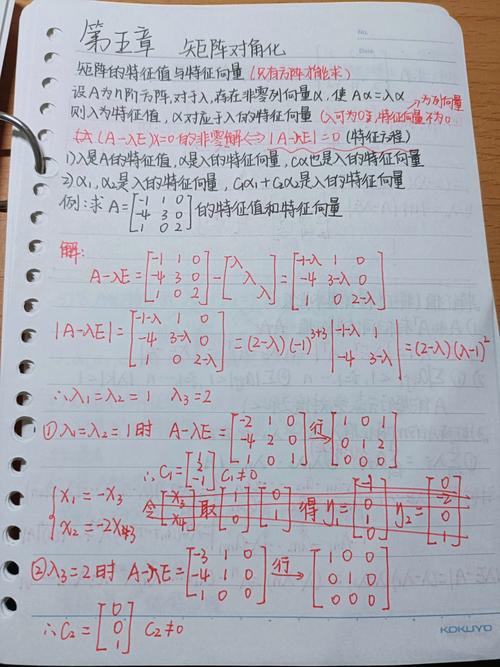 No.
Date
第五章 矩阵对角化
矩阵的特征值与特征向量 (只有方阵才能求)
设A为n阶方阵,对于λ,存在非零列向量α,使 Aα=λα →为列向量
则λ为特征值,α对应于λ的特征向量 (λ可为0,特征向量不为0
(A-λE)X=0的非零解⇔|A-λE|=0 (特征方程)
1)λ是A的特征值,α是λ的特征向量,Cα也是λ的特征向量
2)α1,α2是λ的特征向量,C1α1+C2α2是λ的特征向量
例:求A=[-1 1 0; -4 3 0; 1 0 2]的特征值和特征向量
解:
A-λE=[-1 1 0; -4 3 0; 1 0 2]-[λ λ λ]=[-1-λ 1 0; -4 3-λ 0; 1 0 2-λ]
|A-λE|=[-1-λ 1 0; -4 3-λ 0; 1 0 2-λ]=(2-λ)(-1)^{3+3}|-1-λ 1; -4 3-λ|=(2-λ)(λ-1)²
∴λ1=λ2=1 λ3=2
①λ1=λ2=1时 A-λE=[-2 1 0; -4 2 0; 1 0 1] 行→ [1 0 1; 0 1 2; 0 0 0]
∴C1=[1; 2; -1] C1≠0
{x1=-x3
x2=-2x3
令 取 [1; 0] [0; 1] 得 η1=[-1; 0; 1; 0] η2=[0; -2; 0; 1]
②λ3=2时 A-λE=[-3 1 0; -4 1 0; 1 0 0] 行→ [1 0 0; 0 1 0; 0 0 0]
∴C2=[0; 0; 1] C2≠0
KOKUYO